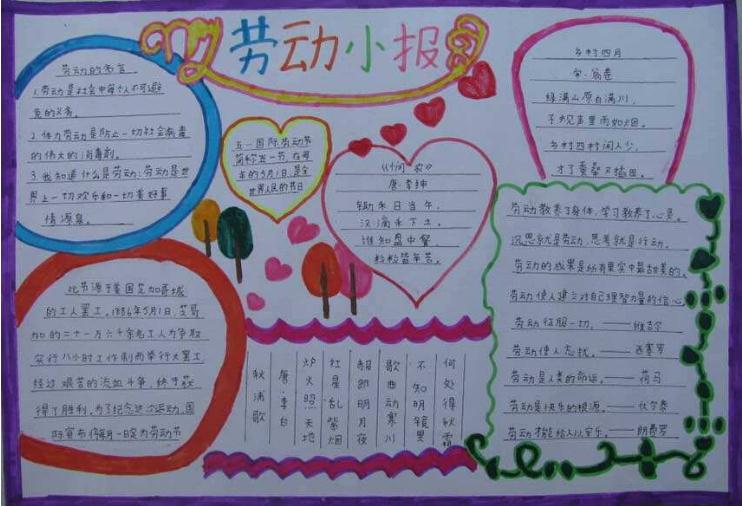 劳动小报
劳动的名言
1.劳动是社会中每个人不可避
免的义务。
2.体力劳动是防止一切社会病毒
的伟大的消毒剂。
3.我知道什么是劳动:劳动是世
界上一切欢乐和一切美好事
情源泉。
五一国际劳动节
简称五一节,在每
年的5月1日,是全
世界人民的节日
《悯农》
唐·李绅
锄禾日当午,
汗滴禾下土。
谁知盘中餐,
粒粒皆辛苦。
乡村四月
宋·翁卷
绿满山原白满川,
子规声里雨如烟。
乡村四村闲人少,
才了蚕桑又插田。
此节源于美国芝加哥城
的工人罢工。1886年5月1日,芝哥
加的二十一万六千余名工人为争取
实行八小时工作制而举行大罢工
经过艰苦的流血斗争,终于获
得了胜利,为了纪念这次运动,国
际宣布将每月一日定为劳动节
秋浦歌
唐·李白
炉火照天地
红星乱紫烟
赧郎明月夜
歌曲动寒川
不知明镜里
何处得秋霜
劳动教养了身体,学习教养了心灵。
沉思就是劳动,思考就是行动。
劳动的成果是所有果实中最甜美的。
劳动使人建立对自己理智力量的信心
劳动征服一切。——维吉尔
劳动使人忘忧。——西塞罗
劳动是人类的命运。——荷马
劳动是快乐的根源。——伏尔泰
劳动才能给人以安乐。——朗费罗